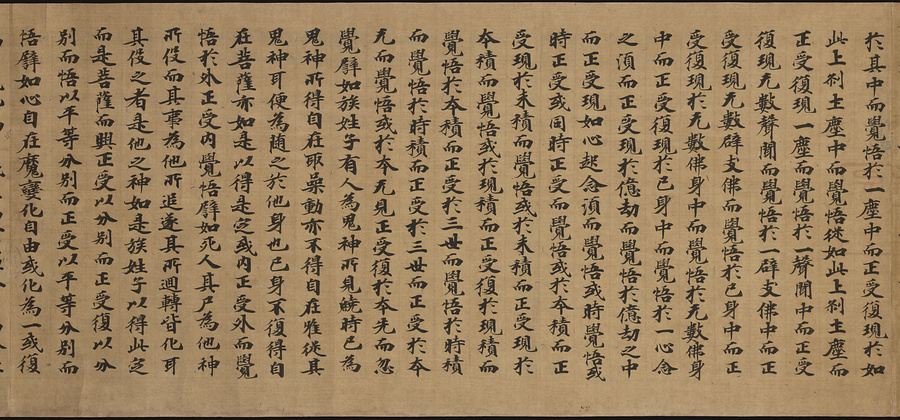 於其中而覺悟於一塵中而正受復現於如
此上刹土塵中而覺悟從如此上刹土塵而
正受復現一塵而覺悟於一聲聞中而正受
復現无數聲聞而覺悟於一辟支佛中而正
受復現无數辟支佛而覺悟於已身中而正
受復現於无數佛身中而覺悟於无數佛身
中而正受復現於已身中而覺悟於一心念
之湏而正受現於億劫而覺悟於億劫之中
而正受現如心起念湏而覺悟或時覺悟或
時正受或同時正受而覺悟或於本積而正
受現於未積而覺悟或於未積而正受現於
本積而覺悟或於現積而正受復於現積而
覺悟於本積而正受於三世而覺悟於時積
而覺悟於時積而正受於三世而正受於本
无而覺悟或於本无見正受復於本无而忽
覺譬如族姓子有人為鬼神所見鐃時已為
鬼神所得自在耶舉動亦不得自在雖從其
鬼神耳便為隨之於他身也已身不復得自
在菩薩亦如是以得是定或內正受外而覺
悟於外正受內覺悟譬如死人其尸為他神
所役而其事為他所追逐其所迴轉皆化耳
其役之者是他之神如是族姓子以得此定
而是菩薩而興正受以分別而正受復以分
別而悟以平等分別而正受以平等分別而
悟譬如心自在魔化自由或化為一或復